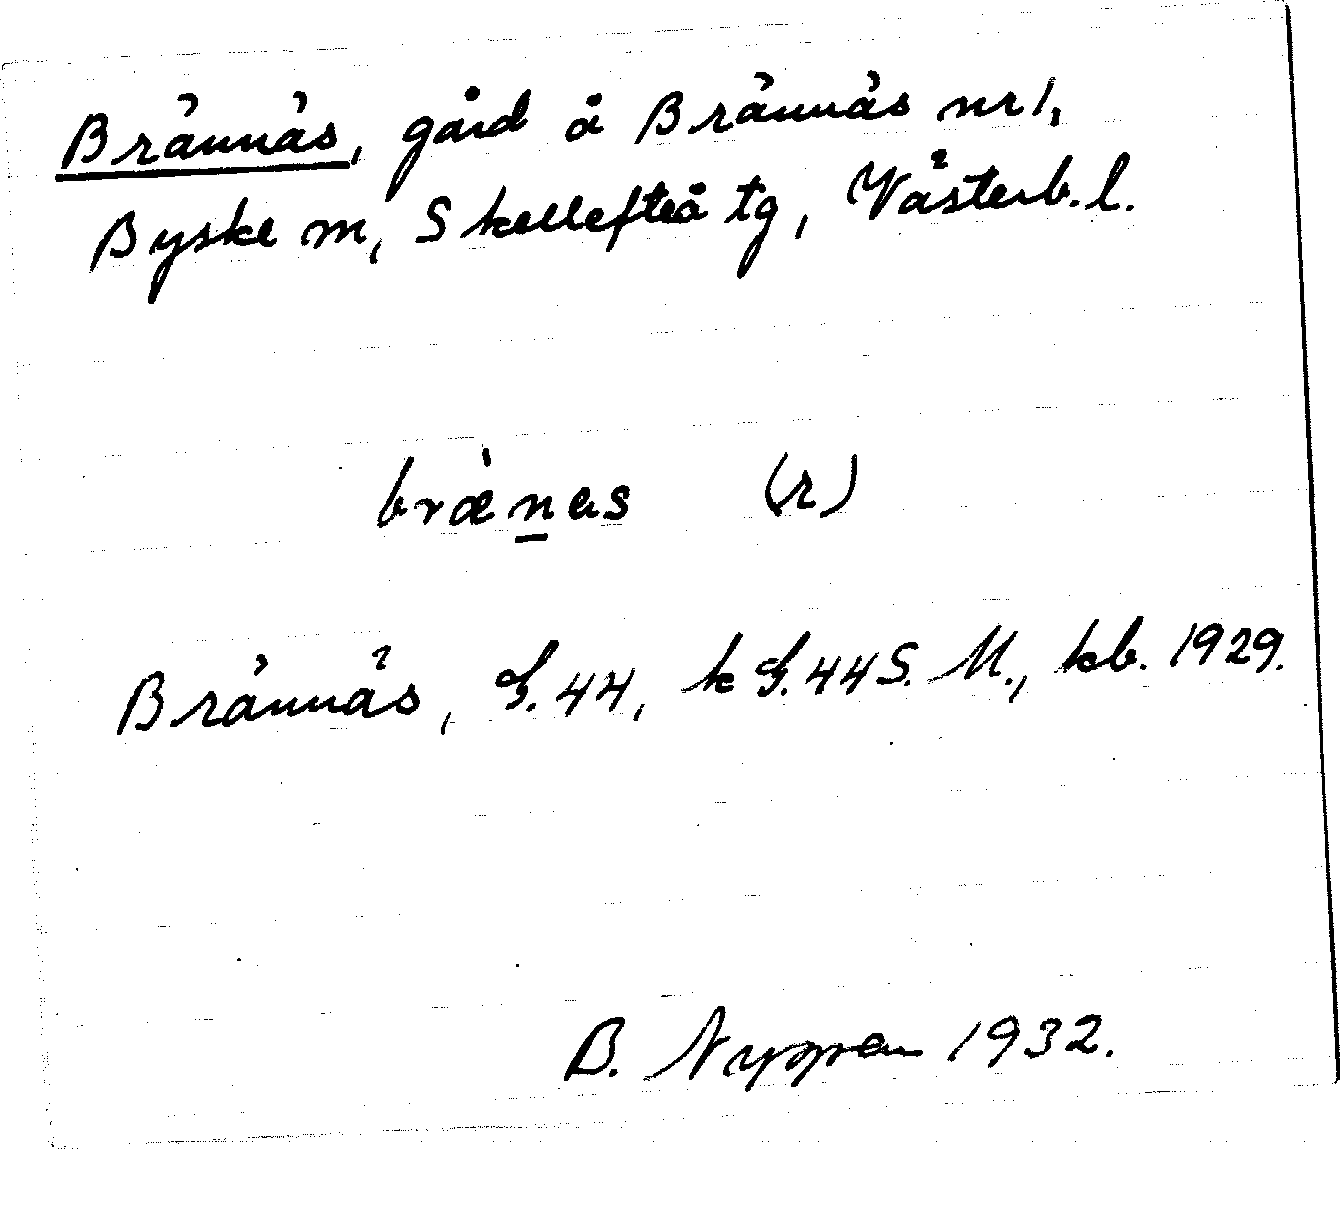 Brännäs, gård å Brännäs nr 1,
Byske sn, Skellefteå tg, Västerb. l.
bræ̀n̲as (r)
Brännäs, G. 44, k G. 44 S. M., kb. 1929.
B. 1932.